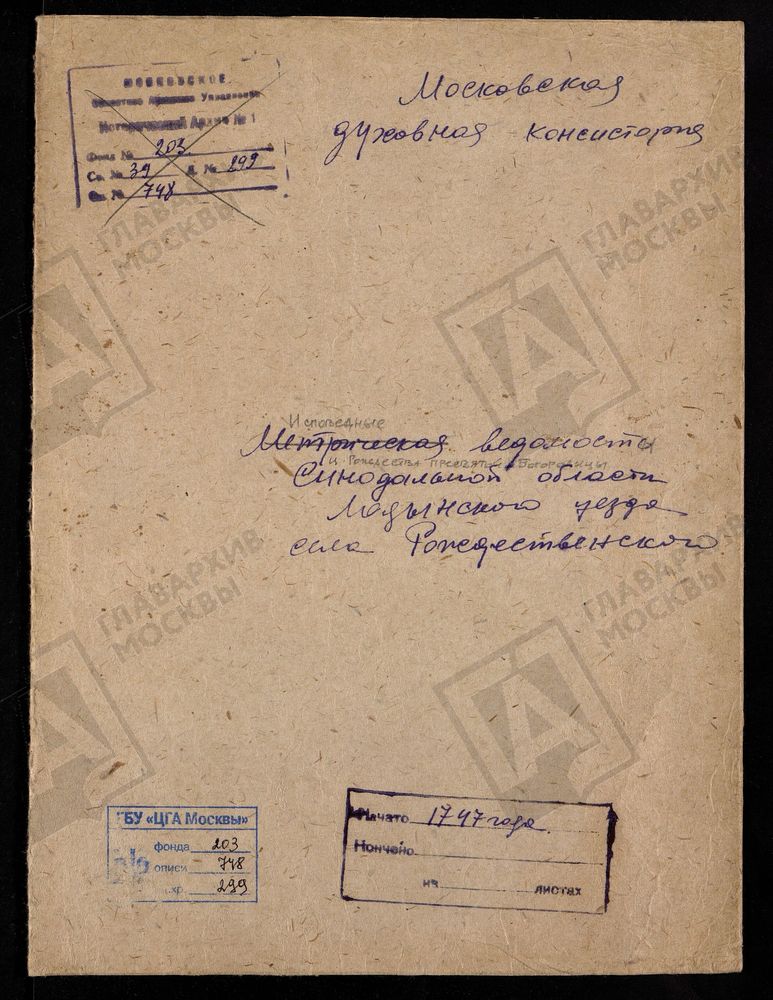 МОСКОВСКОЕ
Областное Архивное Управление
Исторический Архив № 1
Фонд № 203
Св. № 39 Д. № 299
Оп. № 748
Московская
духовная консистория
ГЛАВАРХИВ
МОСКВЫ
ГЛАВАРХИВ
МОСКВЫ
Исповедные
Метрическая ведомости
ц. Рождества пресвятой Богородицы
Синодальной области
Медынского уезда
села Рождественского
ГЛАВАРХИВ
МОСКВЫ
ГЛАВАРХИВ
МОСКВЫ
ГБУ «ЦГА Москвы»
фонда 203
описи 748
хр. 299
Начато 1747 года
Кончено
на листах